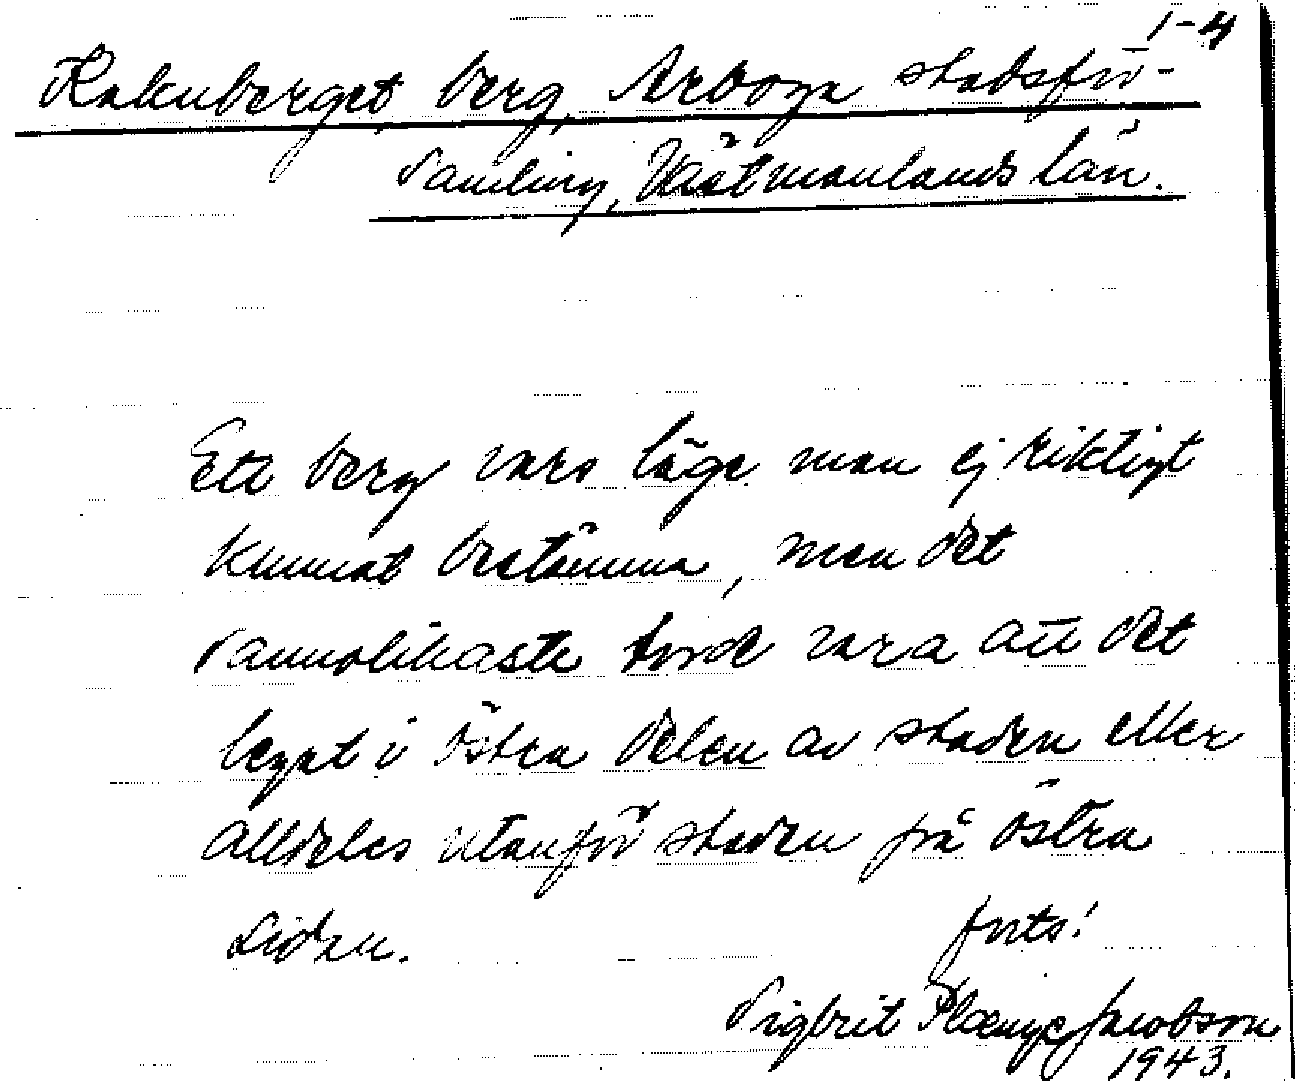 1-4
Kakuberget, berg, Arboga stadsför-
samling, Västmanlands län.
Ett berg vars läge man ej riktigt
kunnat bestämma, men det
sannolikaste torde vara att det
legat i östra delen av staden eller
alldeles utanför staden på östra
sidan. forts!
Sigbrit Plænge Jacobson
1943.